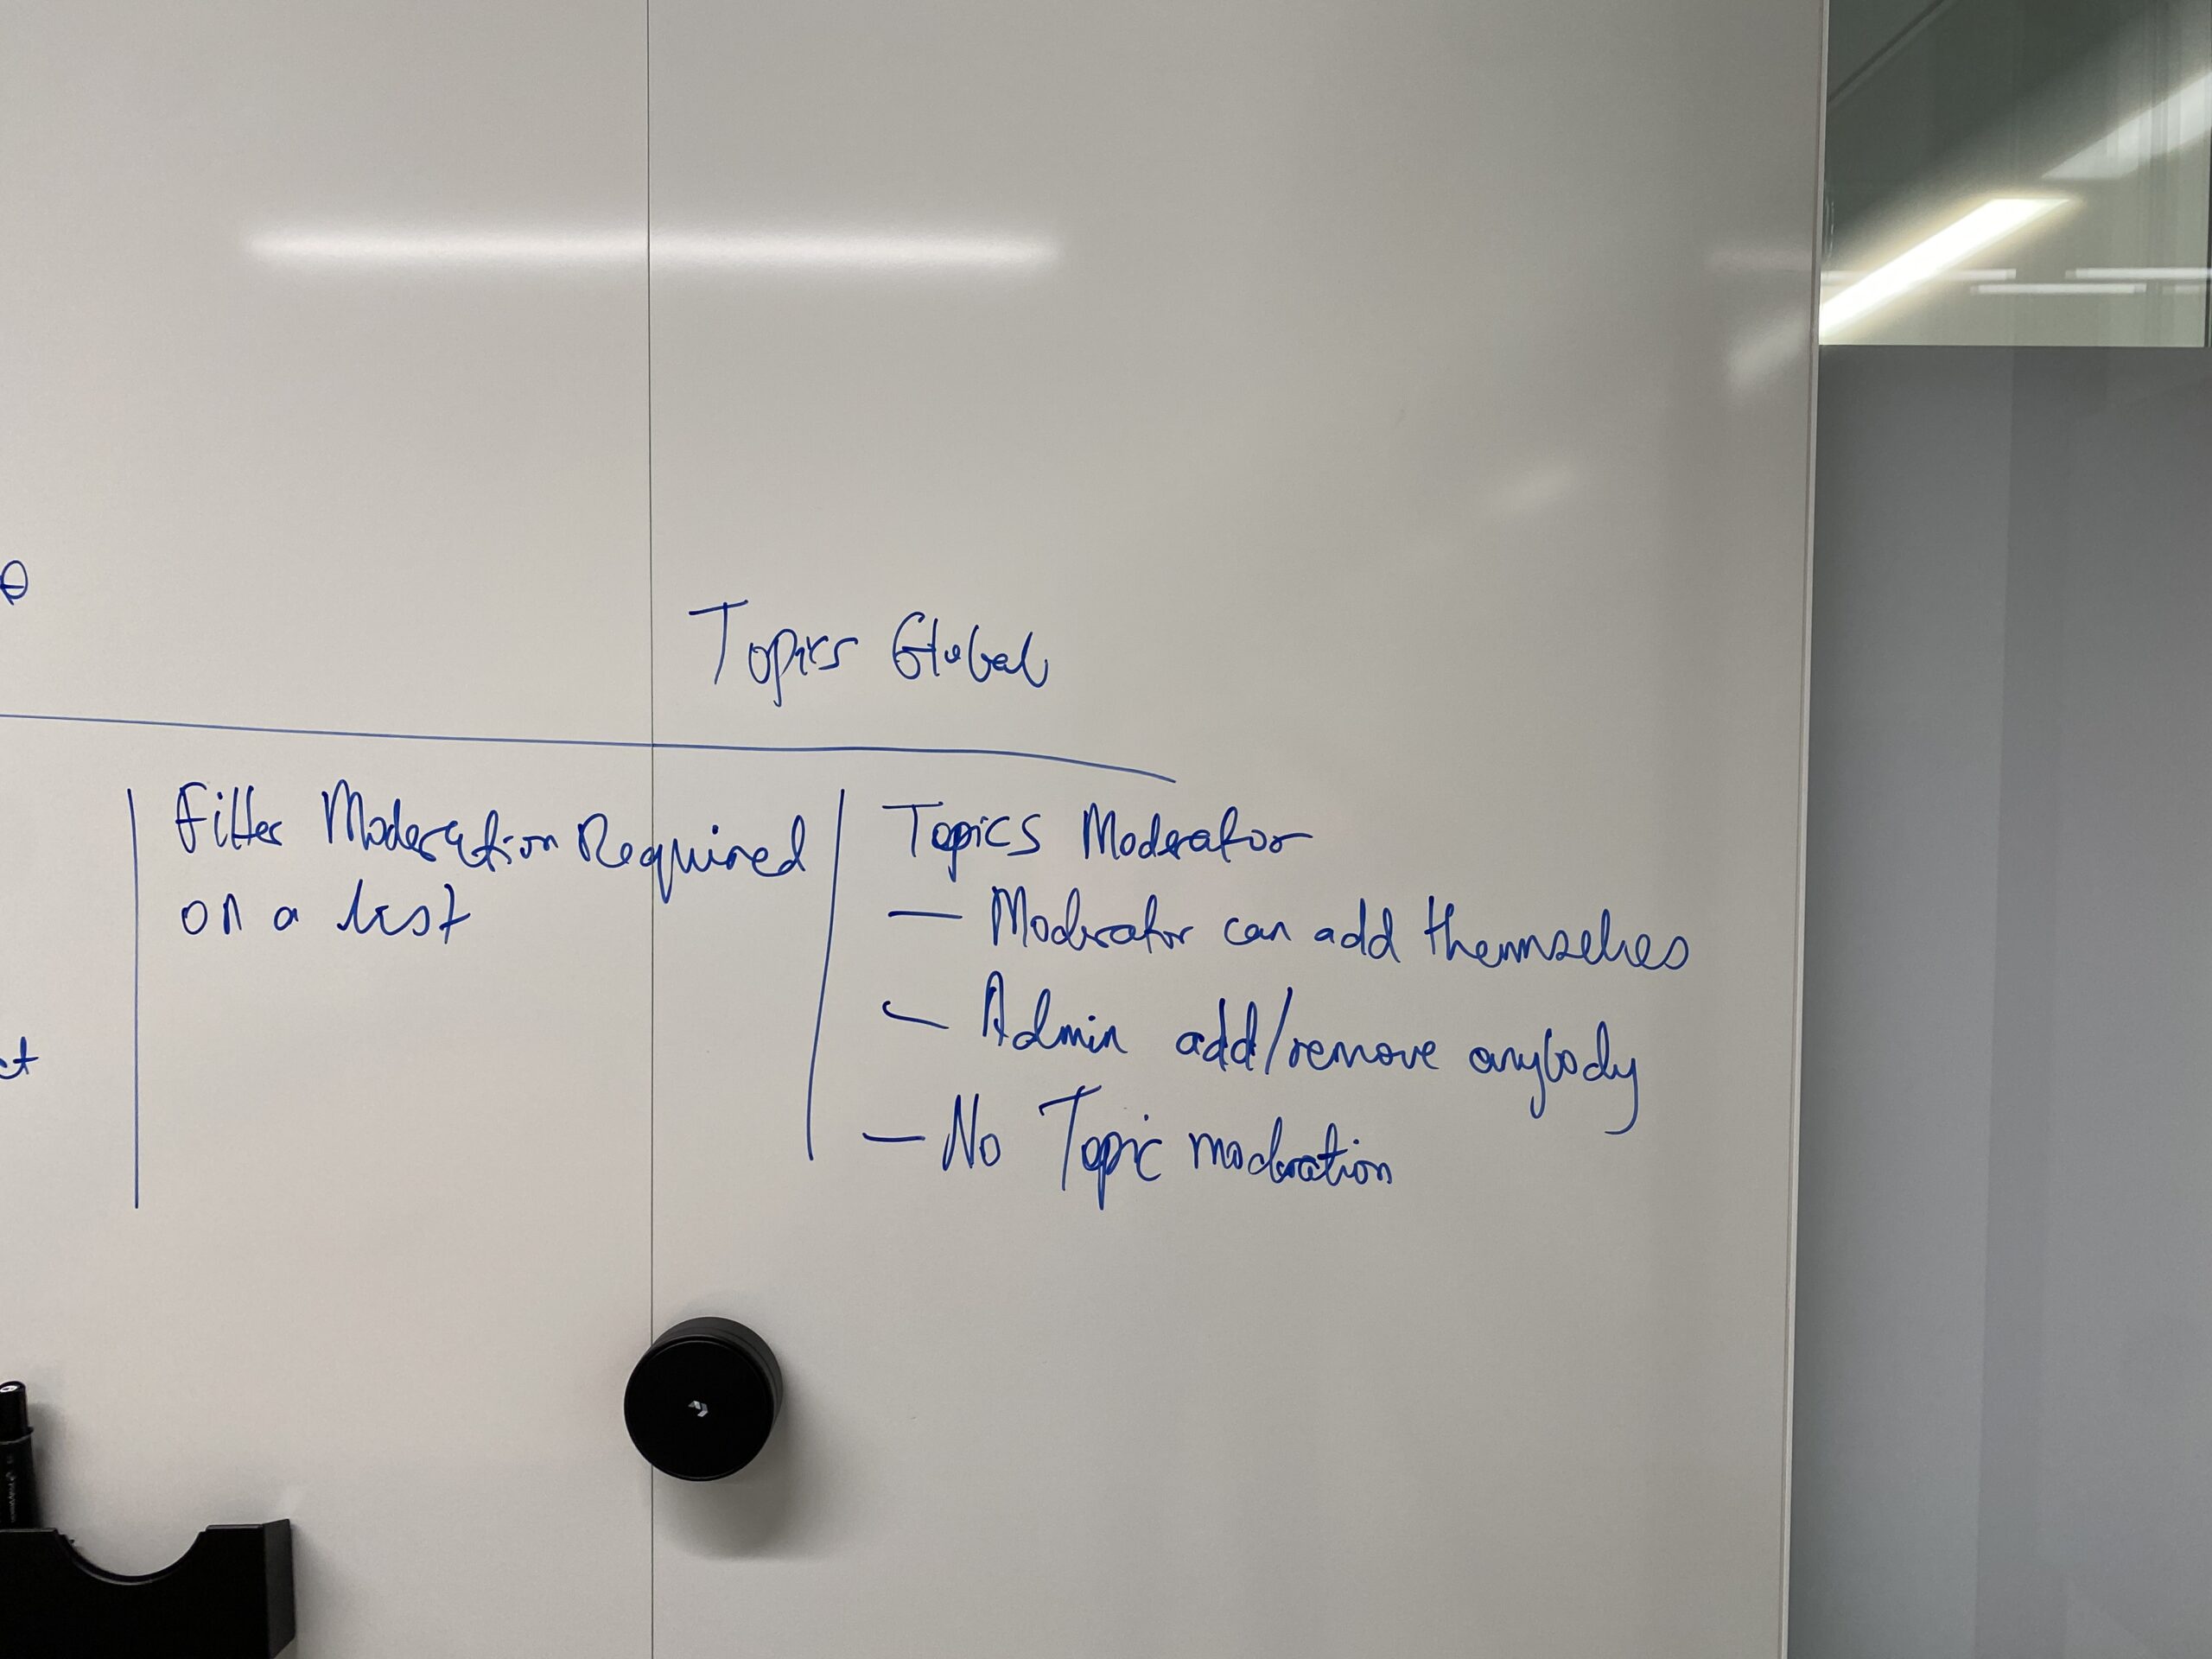 Topics Global
Filter Moderation Required
on a list
Topics Moderator
— Moderator can add themselves
— Admin add/remove anybody
— No Topic moderation